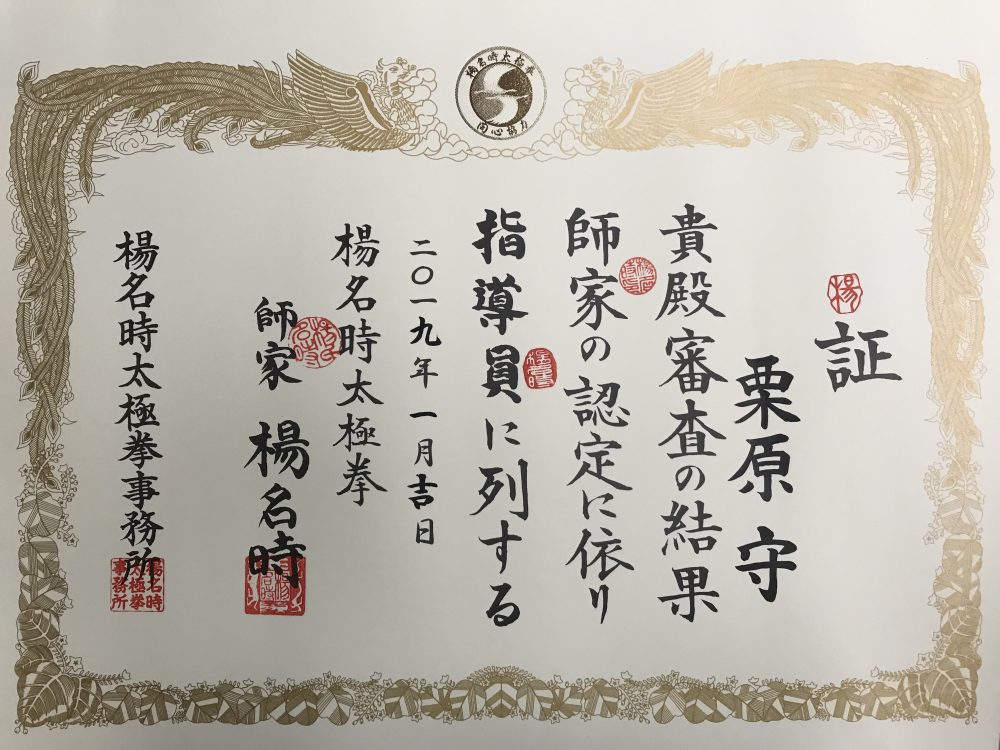 楊名時太極拳
同心協力
楊
証
栗原 守
貴殿審査の結果
師家の認定に依り
指導員に列する
二〇一九年一月吉日
楊名時太極拳
師家 楊名時
楊名時太極拳事務所
楊名時
太極拳
事務所